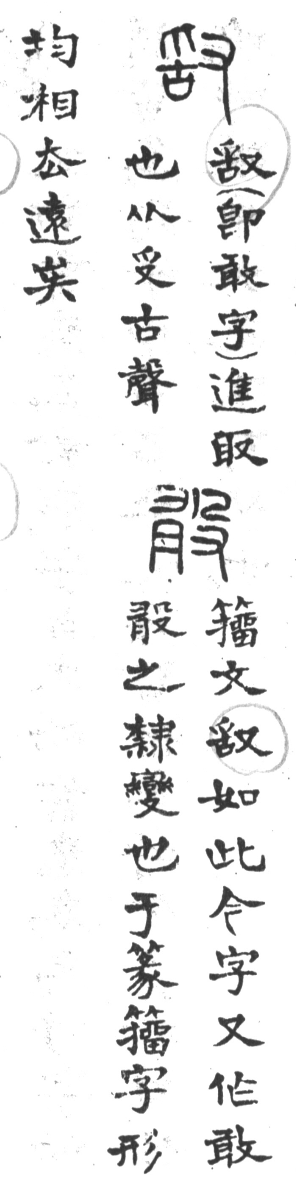 𠭖
𠭖(即敢字)進取
也从𠬪古聲
𣪏
籀文𠭖如此今字又作敢
𣪏之隸變也于篆籀字形
均相去遠矣